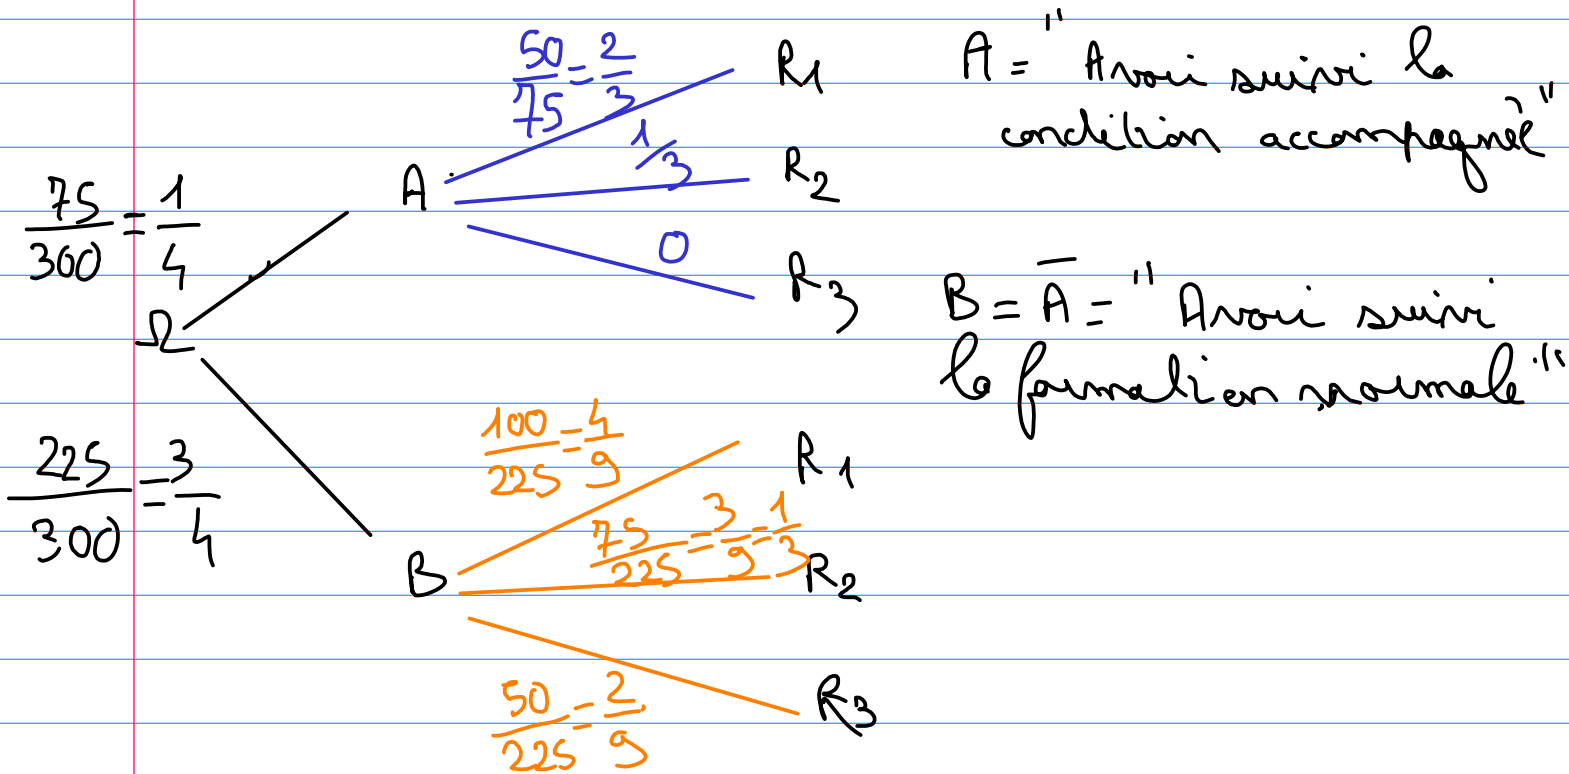 50/75 = 2/3 R1
1/3 R2
0 R3
A
75/300 = 1/4
Ω
225/300 = 3/4
B
100/225 = 4/9 R1
75/225 = 3/9 = 1/3 R2
50/225 = 2/9 R3
A = " Avoir suivi la
condition accompagnée"
B = A̅ = " Avoir suivi
la formation normale"